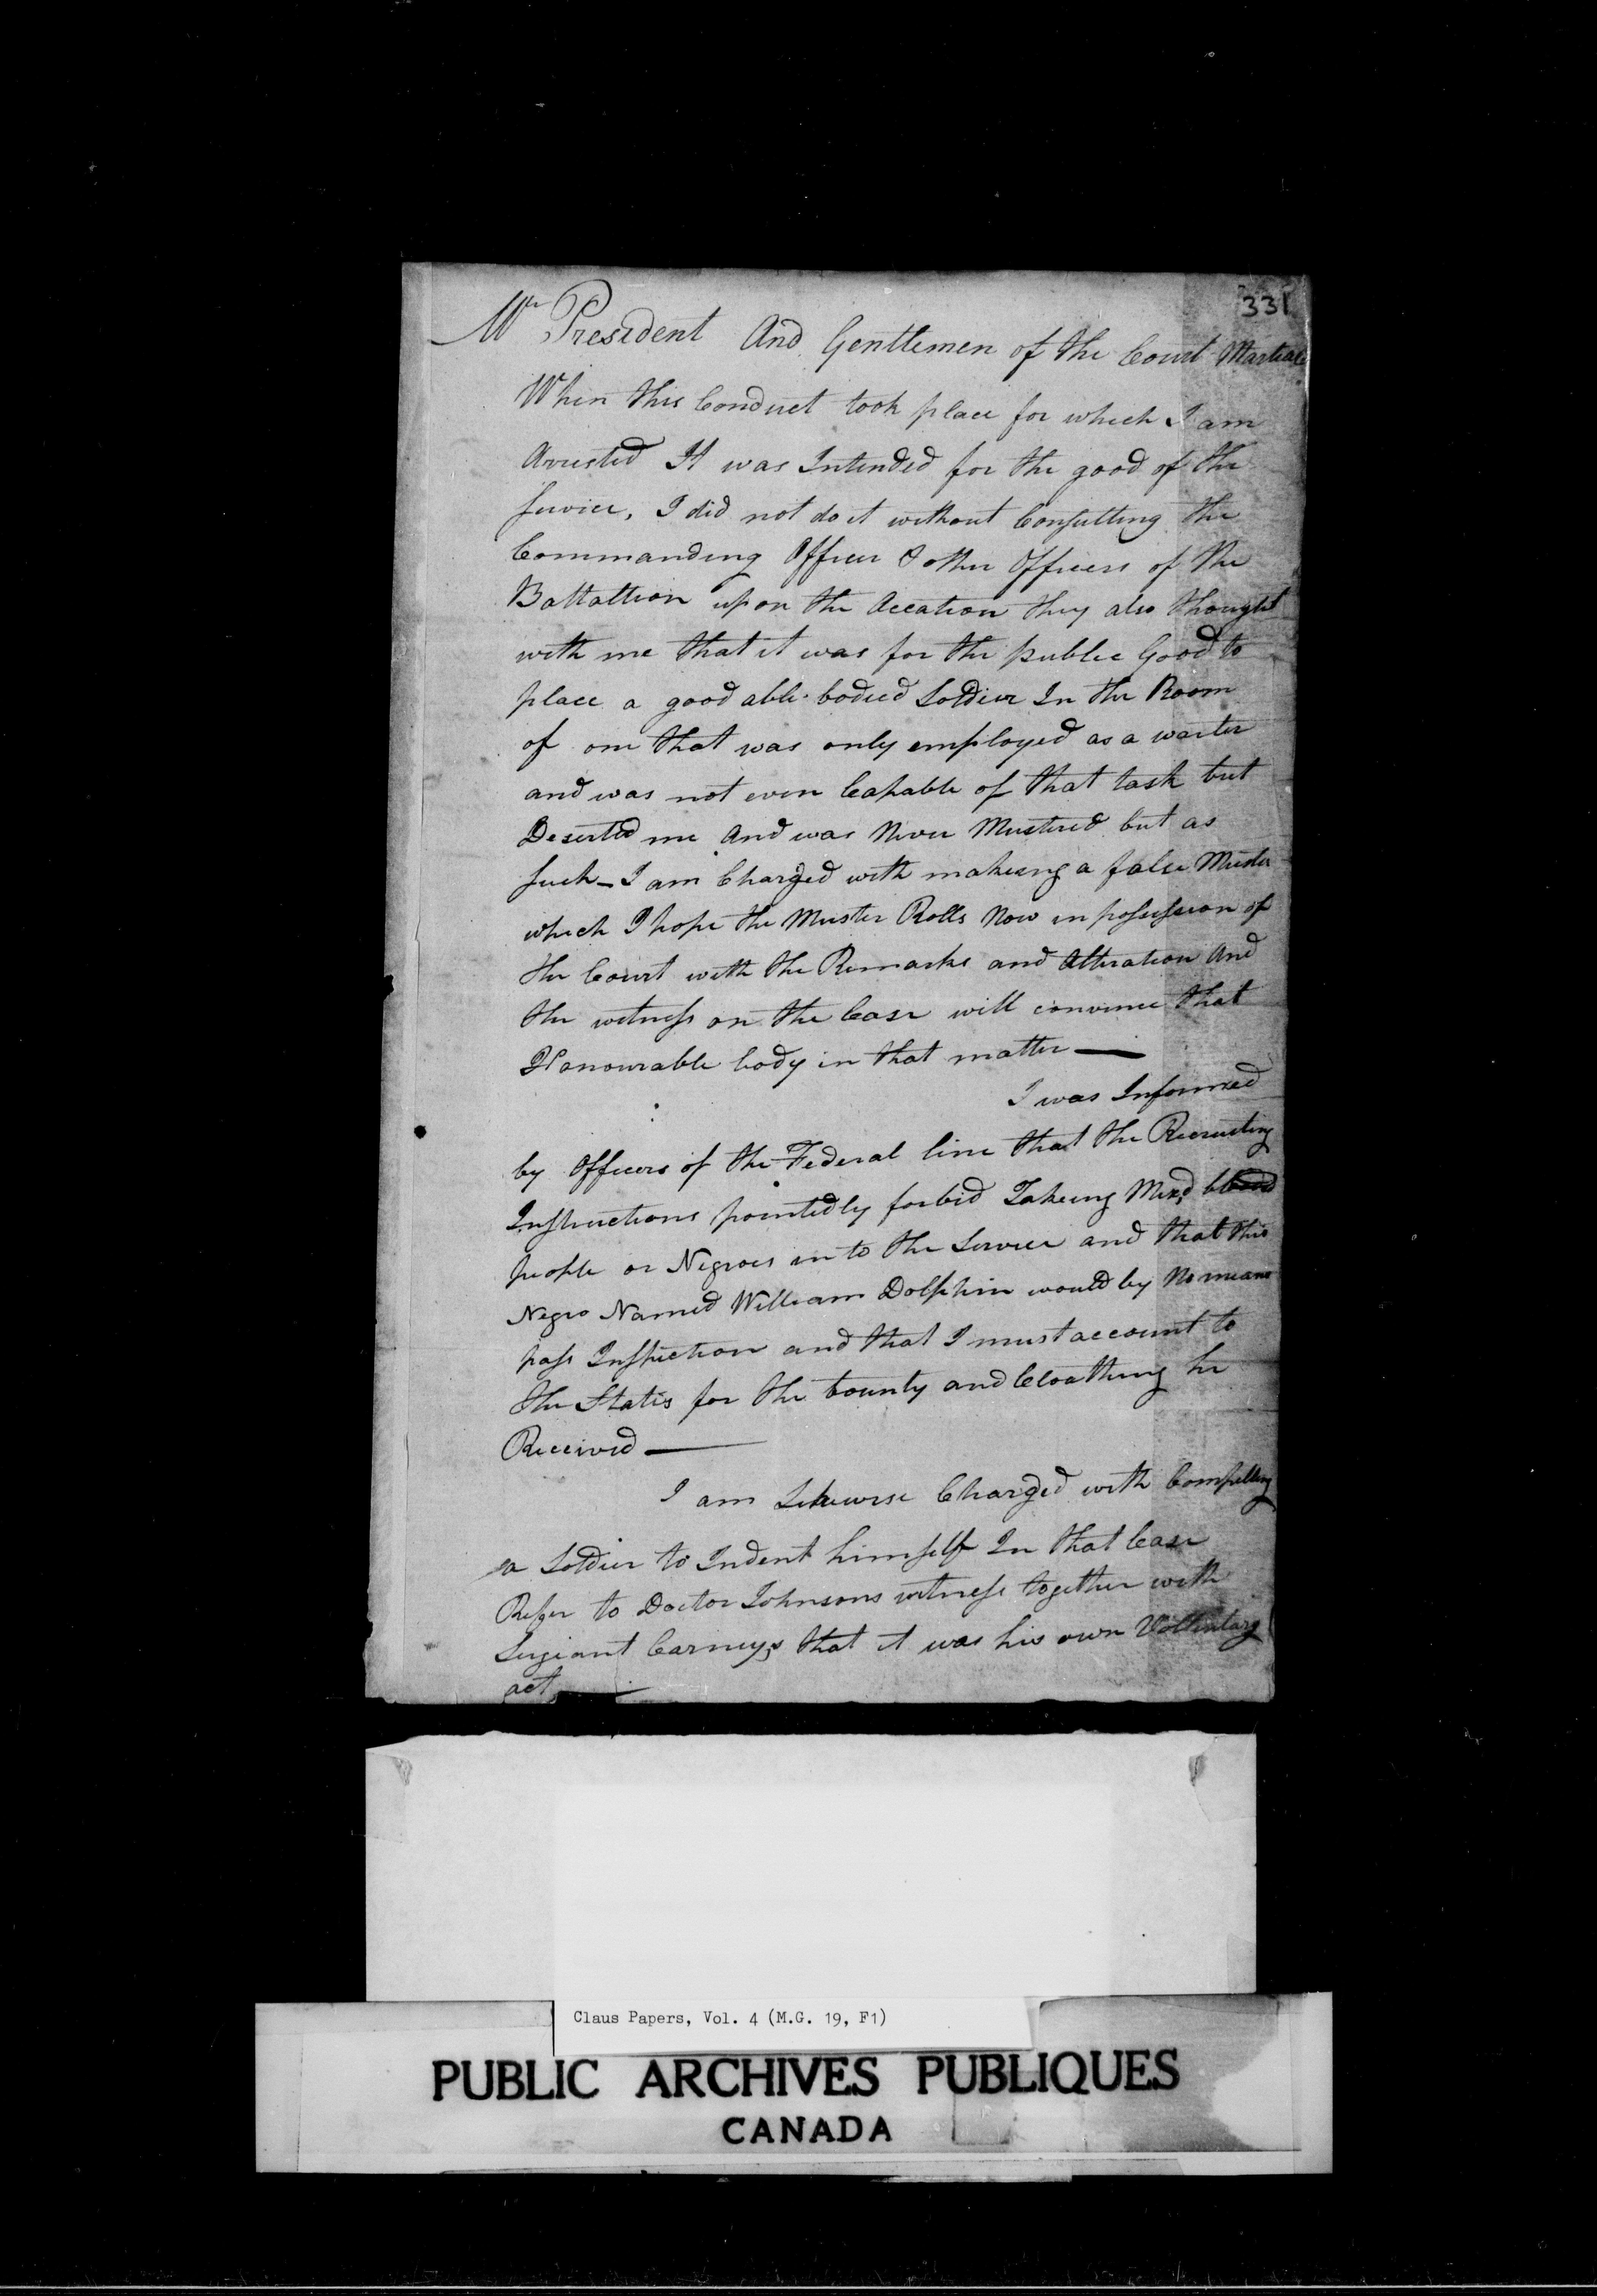 331
Mr President And Gentlemen of the Court Martial
When this Conduct took place for which I am
Arrested It was Intended for the good of the
Service, I did not do it without Consulting the
Commanding Officer & other Officers of the
Battaltion upon the Accation they also thought
with me that it was for the public Good to
place a good able bodied Soldier In the Room
of one that was only employed as a waiter
and was not even Capable of that task but
Deserted me And was Never Mustered but as
such – I am Charged with makeing a false Muster
which I hope the Muster Rolls Now in possession of
the Court with the Remarks and Alteration And
the witness on the Case will convince that
Honourable body in that matter —
I was Informed
by Officers of the Federal line that the Recruiting
Instructions pointedly forbid Takeing Mixd blood
people or Negroes in to the Service and that this
Negro Named William Dolphin would by No means
pass Inspection and that I must account to
the States for the bounty and Cloathing he
Received —
I am Likewise Charged with Compelling
a Soldier to Indent himself In that Case
Refer to Doctor Johnsons witness together with
Sergeant Carneys that it was his own Vollentary
act —
Claus Papers, Vol. 4 (M.G. 19, F1)
PUBLIC ARCHIVES PUBLIQUES
CANADA